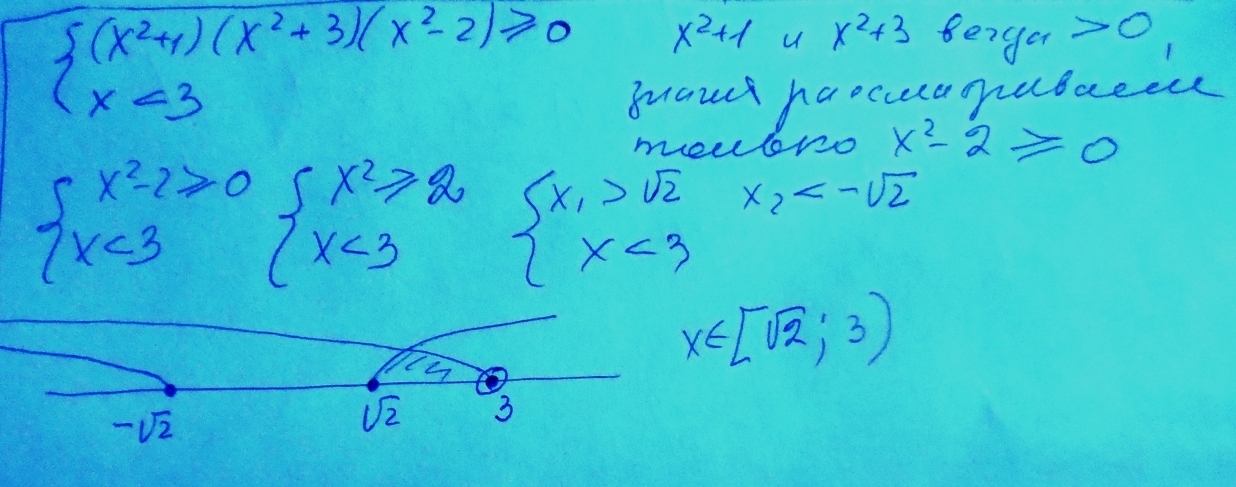 (x²+1)(x²+3)(x²-2)≥0
x<3
x²+1 и x²+3 всегда >0,
значит рассматриваем
только x²-2≥0
x²-2≥0
x<3
x²≥2
x<3
x₁>√2 x₂<-√2
x<3
-√2 √2 3
x∈[√2; 3)